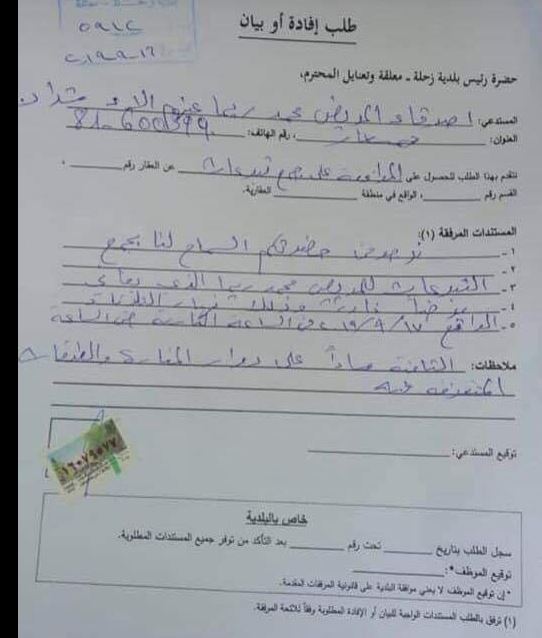 ٥٩١٤
طلب إفادة أو بيان
حضرة رئيس بلدية زحلة - معلقة وتعنايل المحترم،
المستدعي: اصدقاء المريض محمد ريما عنهم
العنوان: ، رقم الهاتف: 81-600399
نتقدم بهذا الطلب للحصول على الموافقة على جمع تبرعات عن العقار رقم ،
القسم رقم ، الواقع في منطقة العقارية.
المستندات المرفقة (١):
١- نرجو من حضرتكم السماح لنا بجمع
٢-
٣- التبرعات للمريض محمد ريما الذي يعاني
٤- مرضاً وذلك نهار الثلاثاء
٥- الواقع ١٧/٩/١٩ من الساعة الثامنة حتى الساعة
ملاحظات: الثامنة مساءً على دوار المنارة والطرقات
المتفرعة عنه
توقيع المستدعي:
١٦٠٧٩٥٧٧
خاص بالبلدية
سجل الطلب بتاريخ تحت رقم بعد التأكد من توفر جميع المستندات المطلوبة.
توقيع الموظف*:
*إن توقيع الموظف لا يعني موافقة البلدية على قانونية المرفقات المقدمة.
(١) ترفق بالطلب المستندات الواجبة للبيان أو الإفادة المطلوبة وفقاً للائحة المرفقة.